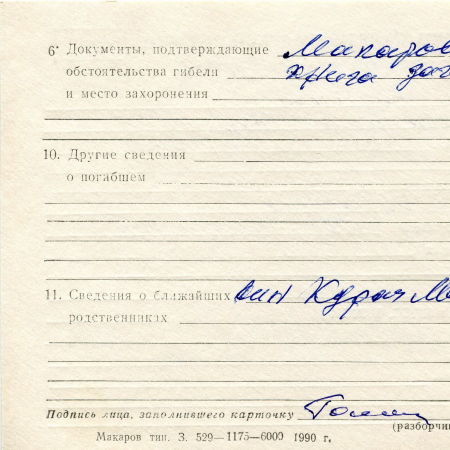 6* Документы, подтверждающие Макаров
обстоятельства гибели книга
и место захоронения
10. Другие сведения
о погибшем
11. Сведения о ближайших син
родственниках
Подпись лица, заполнившего карточку
(разборчи
Макаров тип. З. 529—1175—6000 1990 г,